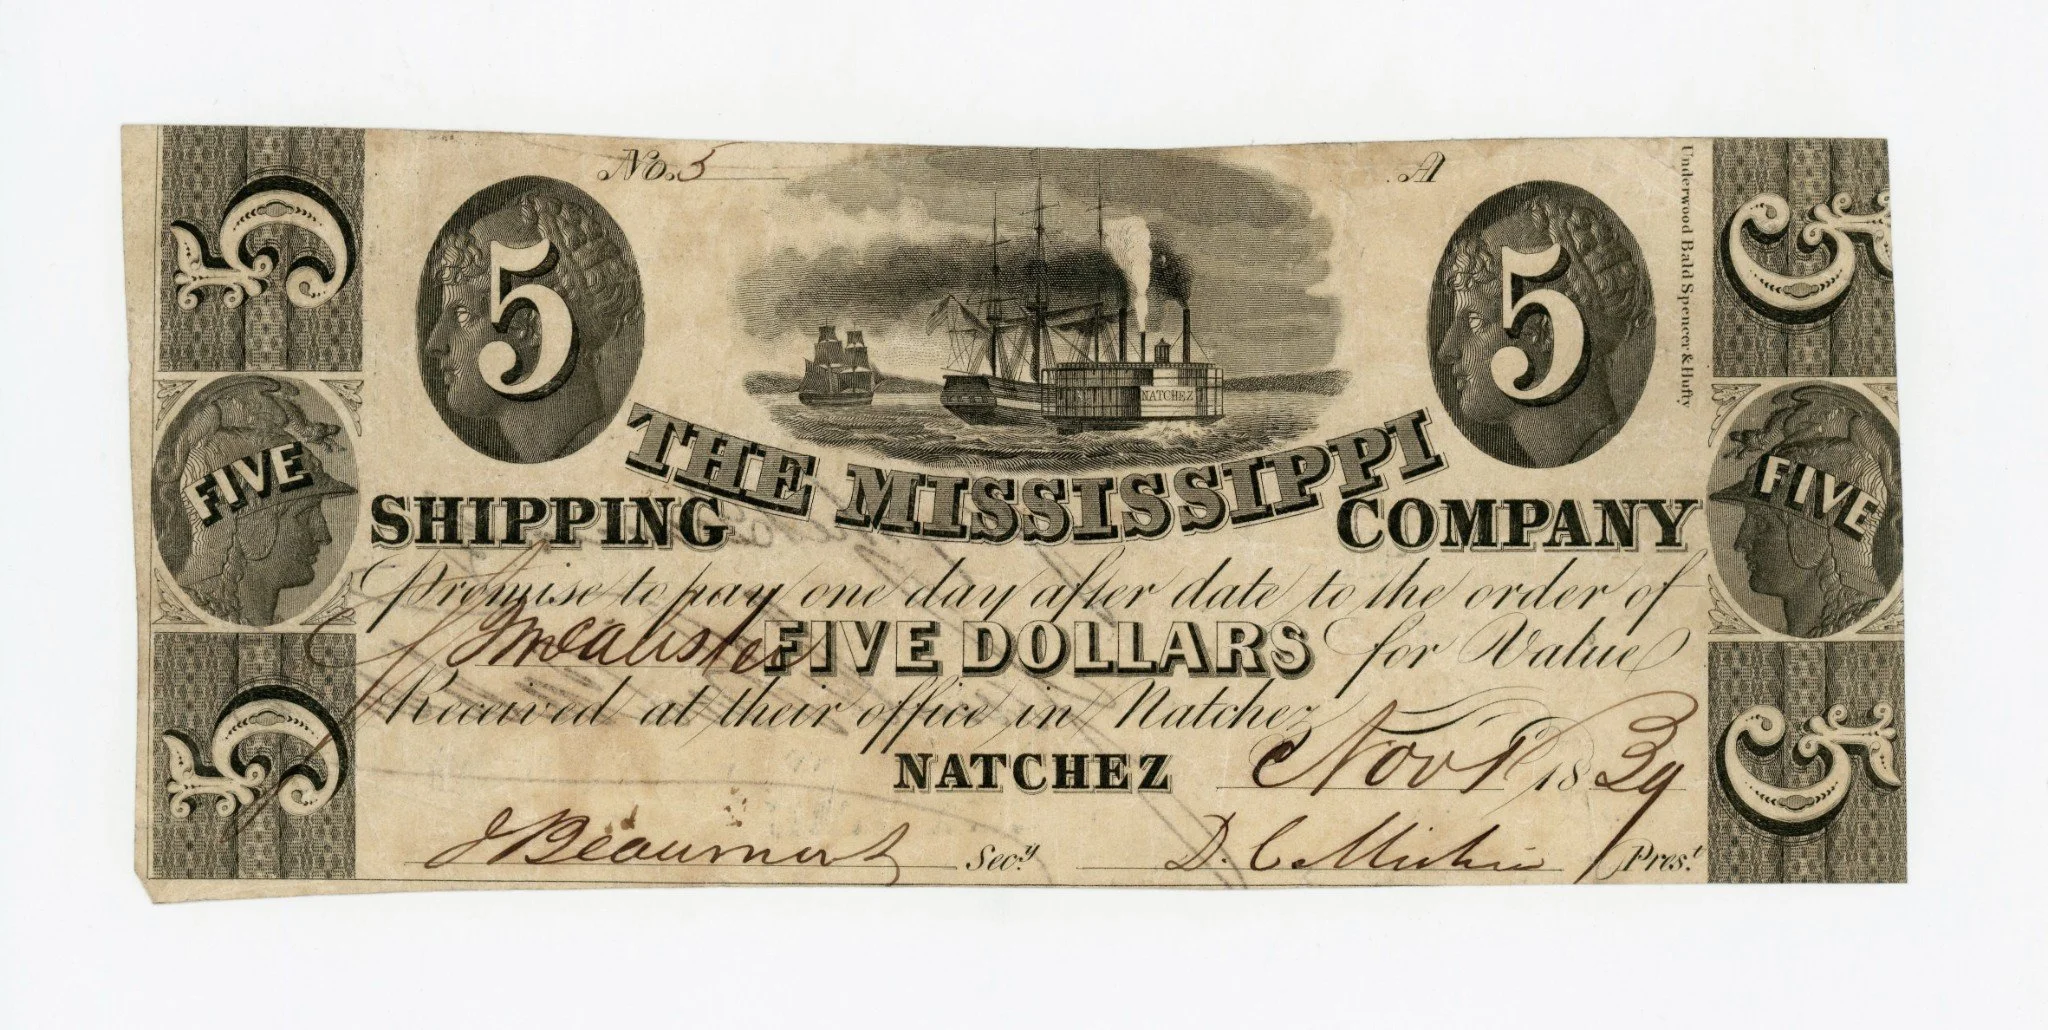 No. 5
A
5
5
5
5
Underwood Bald Spencer & Hufty
NATCHEZ
FIVE
FIVE
THE MISSISSIPPI
SHIPPING COMPANY
Promise to pay one day after date to the order of
FIVE DOLLARS for Value
Received at their office in Natchez
5
5
NATCHEZ Nov 1st 1839
J Beaumont Secy.
D. C. Michie Prest.